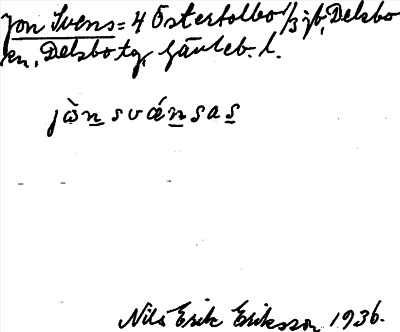 Jon Svens = 4 Österbolbo 1/3 jb, Delsbo
sn, Delsbo tg, Gävleb. l.
jòn svánsas
Nils Erik Eriksson 1936.